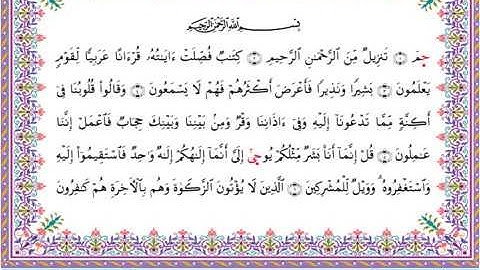 بِسْمِ اللَّهِ الرَّحْمَٰنِ الرَّحِيمِ
حمٓ ۝ تَنزِيلٌ مِّنَ الرَّحْمَٰنِ الرَّحِيمِ ۝ كِتَابٌ فُصِّلَتْ ءَايَاتُهُۥ قُرْءَانًا عَرَبِيًّا لِّقَوْمٍ
يَعْلَمُونَ ۝ بَشِيرًا وَنَذِيرًا فَأَعْرَضَ أَكْثَرُهُمْ فَهُمْ لَا يَسْمَعُونَ ۝ وَقَالُوا قُلُوبُنَا فِىٓ
أَكِنَّةٍ مِّمَّا تَدْعُونَآ إِلَيْهِ وَفِىٓ ءَاذَانِنَا وَقْرٌ وَمِنۢ بَيْنِنَا وَبَيْنِكَ حِجَابٌ فَاعْمَلْ إِنَّنَا
عَامِلُونَ ۝ قُلْ إِنَّمَآ أَنَا۠ بَشَرٌ مِّثْلُكُمْ يُوحَىٰٓ إِلَىَّ أَنَّمَآ إِلَٰهُكُمْ إِلَٰهٌ وَاحِدٌ فَاسْتَقِيمُوٓا إِلَيْهِ
وَاسْتَغْفِرُوهُ ۗ وَوَيْلٌ لِّلْمُشْرِكِينَ ۝ الَّذِينَ لَا يُؤْتُونَ الزَّكَوٰةَ وَهُم بِالْأَخِرَةِ هُمْ كَافِرُونَ